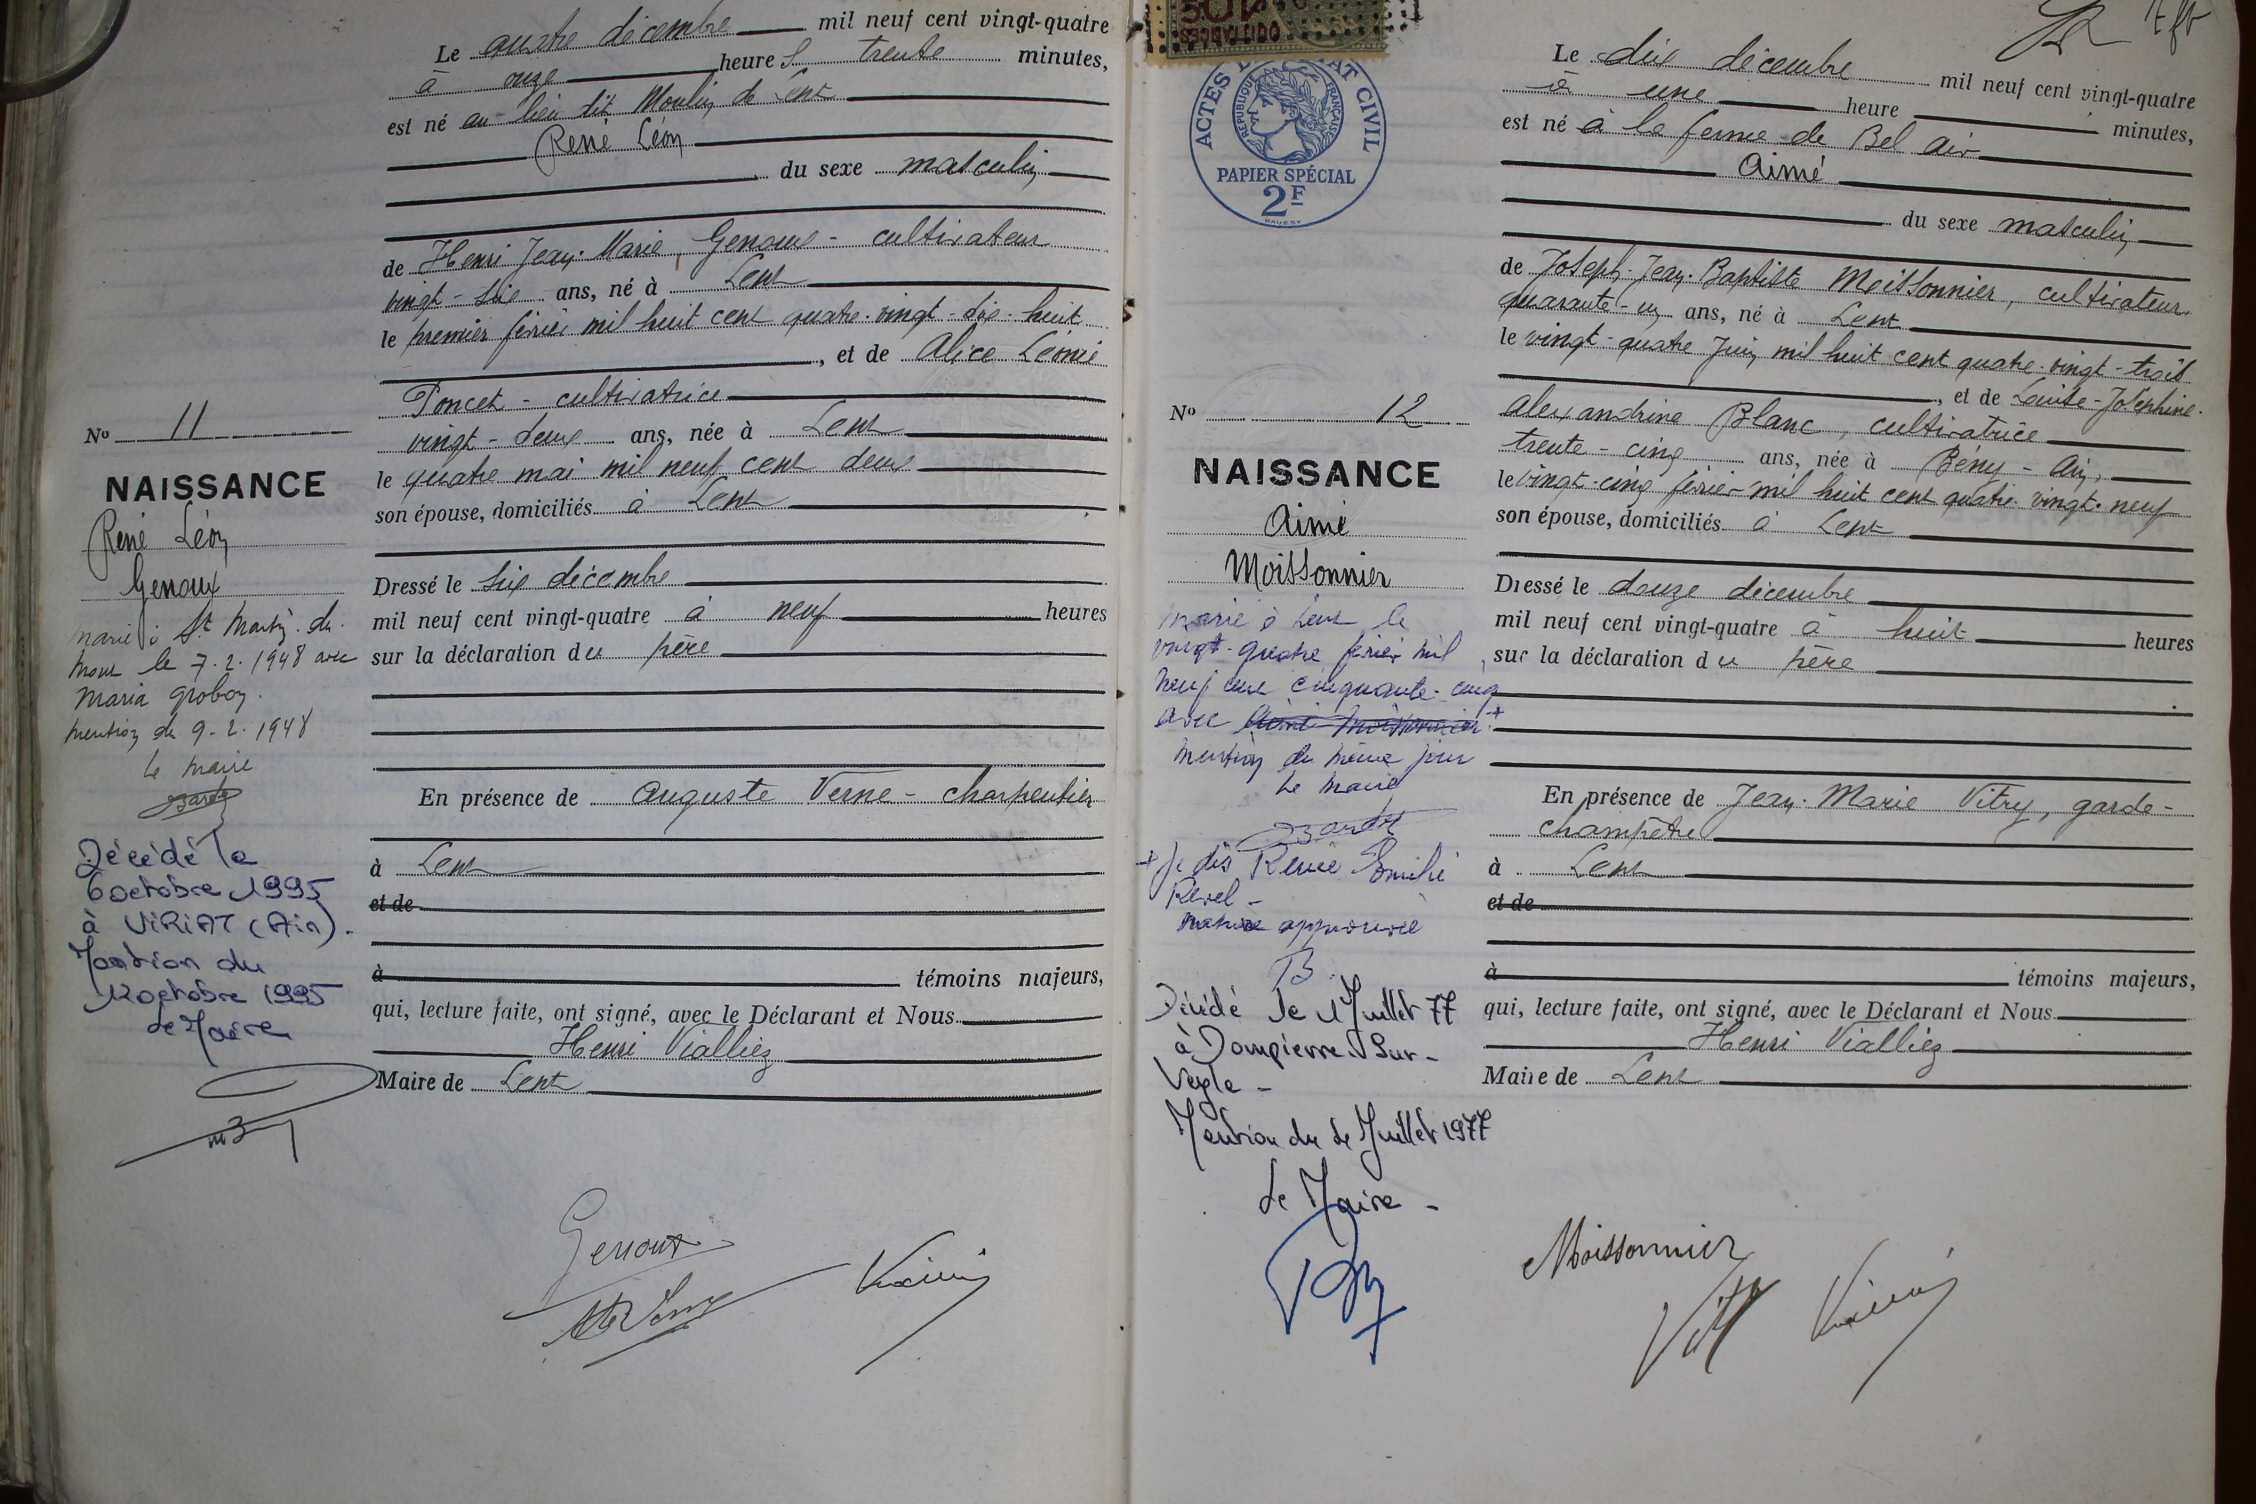 Le quatre décembre mil neuf cent vingt-quatre
à onze heures trente minutes,
est né au lieu dit Moulin de Lent
René Léon
du sexe masculin
de Henri Jean-Marie Genoux - cultivateur
vingt-six ans, né à Lent
le premier février mil huit cent quatre-vingt-dix-huit
, et de Alice Léonie
Poncet - cultivatrice
vingt-deux ans, née à Lent
le quatre mai mil neuf cent deux
son épouse, domiciliés à Lent
Dressé le six décembre
mil neuf cent vingt-quatre à neuf heures
sur la déclaration du père
En présence de Auguste Verne - charpentier
à Lent
et de
à témoins majeurs,
qui, lecture faite, ont signé, avec le Déclarant et Nous
Henri Viallier
Maire de Lent
Genoux
No 11
NAISSANCE
René Léon
Genoux
marié à St Martin du
Mont le 7.2.1948 avec
Maria Groboz.
mention du 9.2.1948
Le Maire
Décédé le
6 octobre 1995
à VIRIAT (Ain).
Mention du
12 octobre 1995
Le Maire
ACTES DE L'ÉTAT CIVIL
RÉPUBLIQUE FRANÇAISE
PAPIER SPÉCIAL
2F
No 12
NAISSANCE
Aimé
Moissonnier
Marié à Lent le
vingt-quatre février mil
neuf cent cinquante-cinq
avec Aimé Moissonnier +
Mention du même jour
Le Maire
+ Je dis Renée Emilie
Revel -
rature approuvée
B
Décédé le 1 Juillet 77
à Dompierre-Sur-
Veyle -
Mention du 4 Juillet 1977
Le Maire -
Le dix décembre mil neuf cent vingt-quatre
à une heure minutes,
est né à la ferme de Bel air
Aimé
du sexe masculin
de Joseph-Jean-Baptiste Moissonnier, cultivateur
quarante-un ans, né à Lent
le vingt-quatre Juin mil huit cent quatre-vingt-trois
, et de Louise-Joséphine-
Alexandrine Blanc, cultivatrice
trente-cinq ans, née à Bény - Ain,
le vingt-cinq février mil huit cent quatre-vingt-neuf
son épouse, domiciliés à Lent
Dressé le douze décembre
mil neuf cent vingt-quatre à huit heures
sur la déclaration du père
En présence de Jean-Marie Vitry, garde-
champêtre
à Lent
et de
à témoins majeurs,
qui, lecture faite, ont signé, avec le Déclarant et Nous
Henri Viallier
Maire de Lent
Moissonnier